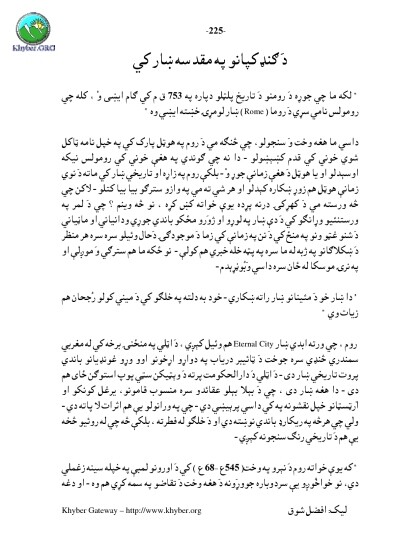 -225-
Khyber.ORG
دَ ګنډکپانو په مقدسه ښار کي
" لکه ما چي جوړه دَ رومنو دَ تاريخ پلټلو دپاره په 753 ق م کي ګام ايښی وُ ، کله چي
رومولس نامي سړي دَ روما ( Rome ) ښار لومړۍ خښته ايښې وه "
داسې ما هغه وخت وَ سنجولو ، چي څنګه مي دَ روم په هوټل پارک کي په خپل نامه ټاکل
شوي خونې کي قدم کښېښولو - دا نه چي ګوندې په هغې خونې کي رومولس نيکه
اوسېدلو او يا هوټل دَ هغې زمانې جوړ وُ - بلکې روم په زاړه او تاريخي ښار کي ماته دَ نوې
زمانې هوټل هم زوړ ښکاره کېدلو او هر شي ته مي په وازو سترګو بيا بيا کتلو - لاکن چي
څه ورسته مي دَ کهړکۍ درنه پرده يوې خواته کښ کړه ، نو څه وينم ؟ چي دَ لمر په
ورستنيو وړانګو کي دَ دې ښار په لوړو او ژورو مځکو باندي جوړي ودانۍاني او ماڼياني
دَ شنو غټو ونو په منځ کي دَ نن په زمانې کي زما دَ موجودګۍ دَحال وئيلو سره سره هر منظر
دَ ښکلاګانو په ژبه له ما سره په پټه خله خبرې هم کولې - نو ځکه ما هم سترګې وَ موږلې او
په نرۍ موسکا له ځان سره داسې وَ بُونږېدم-
" دا ښار خو دَ مئينانو ښار راته ښکاري - خود به دلته په خلګو کي دَ ميني کولو رُجحان هم
زيات وي "
روم ، چي ورته ابدي ښار Eternal City هم وئيل کېږي ، دَ اټلي په منځنۍ برخه کي له مغربي
سمندري څنډې سره جوخت دَ ټائيبر درياب په دواړو اړخونو اوو وړو غونډيانو باندي
پروت تاريخي ښار دی - دَ اټلي دَ دارالحکومت پرته دَ وېټيکن سټي پوپ استوګن ځای هم
دی - دا هغه ښار دی ، چي دَ بېلا بېلو عقائدو سره منسوب قامونو ، يرغل کونکو او
آرټسټانو خپل نقشونه په کي داسې پرېښي دي - چي په ورانولو يې هم اثرات لا پاته دي -
ولې چي هرڅه په ريکارډ باندي نوښته دي او دَ خلګو له فطرته ، بلکې څه چي له روئيو څخه
يې هم دَ تاريخي رنګ سنجونه کېږي-
"که يوې خواته روم دَ نېرو په وخت (545ع -68 ع ) کي دَ اورونو لمبې په خپله سينه زغملې
دي، نو خواخوږو يې سر دوباره جوړونه دَ هغه وخت دَ تقاضو په سمه کړې هم وه - او دغه
Khyber Gateway – http://www.khyber.org
ليک: افضل شوق